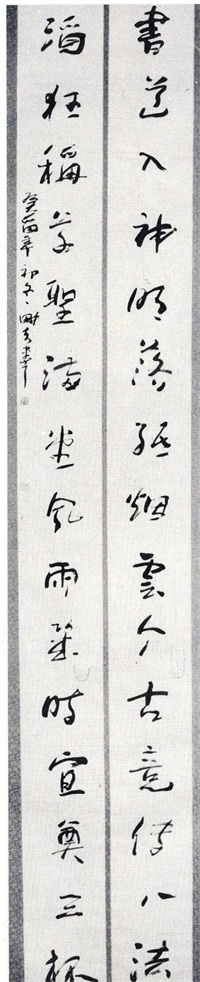 書道入神明落紙烟雲今古竟傳八法
酒狂稱草聖滿堂風雨歲時宜奠三杯
癸酉年初冬